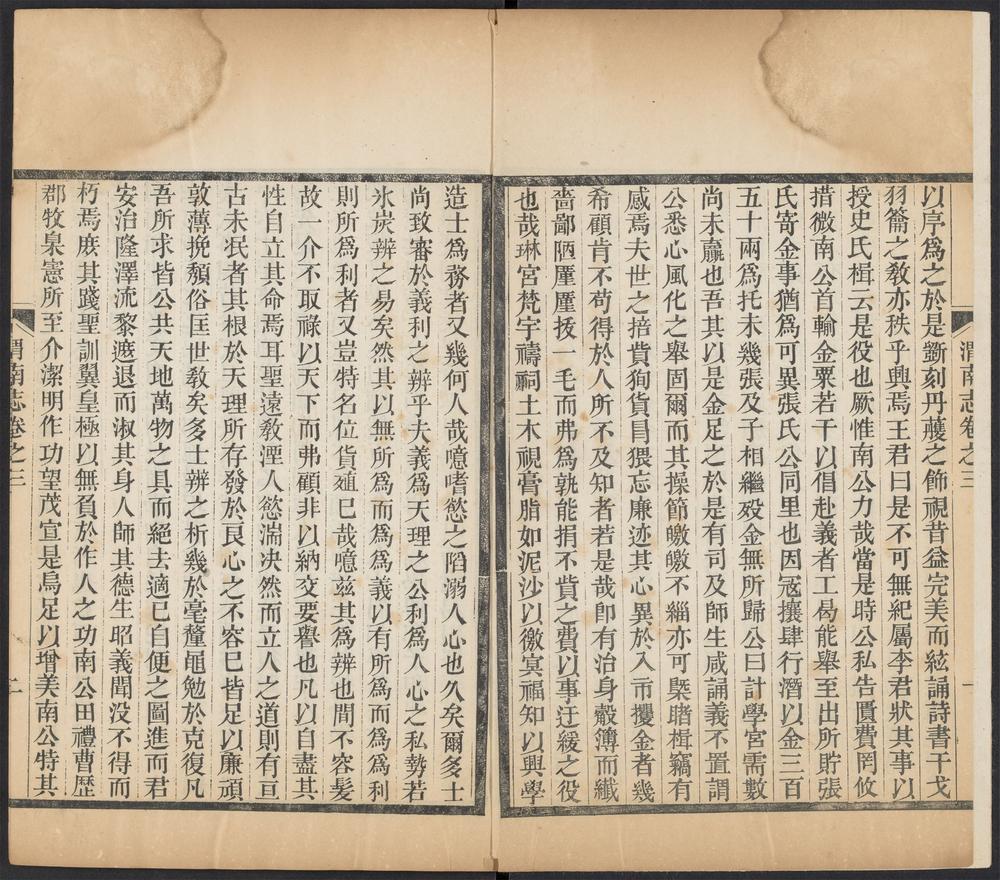 渭南志卷之三
一
以序爲之於是斵刻丹雘之飾視昔益完美而絃誦詩書干戈
羽籥之敎亦秩乎興焉王君曰是不可無紀屬李君狀其事以
授史氏楫云是役也厥惟南公力哉當是時公私告匱費罔攸
措微南公首輸金粟若干以倡赴義者工曷能舉至出所貯張
氏寄金事猶爲可異張氏公同里也因寇攘肆行潛以金三百
五十兩爲托未幾張及子相繼歿金無所歸公曰計學宮需數
尚未贏也吾其以是金足之於是有司及師生咸誦義不置謂
公悉心風化之舉固爾而其操節皦皦不緇亦可槩睹楫竊有
感焉夫世之掊貲狥貨㒻猥忘廉迹其心異於入市攫金者幾
希顧肯不苟得於人所不及知者若是哉卽有治身觳簿而纖
嗇鄙陋㕓㕓拔一毛而弗爲孰能捐不貲之費以事迂緩之役
也哉琳宮梵宇禱祠土木視膏脂如泥沙以徼冥福知以興學
造士爲務者又幾何人哉噫嗜慾之陷溺人心也久矣爾多士
尚致審於義利之辨乎夫義爲天理之公利爲人心之私勢若
氷炭辨之易矣然其以無所爲而爲爲義以有所爲而爲爲利
則所爲利者又豈特名位貨殖巳哉噫兹其爲辨也間不容髮
故一介不取祿以天下而弗顧非以納交要譽也凡以自盡其
性自立其命焉耳聖遠敎湮人慾湍决然而立人之道則有亘
古未泯者其根於天理所存發於良心之不容巳皆足以廉頑
敦薄挽頽俗匡世敎矣多士辨之析幾於毫釐黽勉於克復凡
吾所求皆公共天地萬物之具而絕去適巳自便之圖進而君
安治隆澤流黎遮退而淑其身人師其德生昭義聞没不得而
朽焉庶其踐聖訓翼皇極以無負於作人之功南公田禮曹歴
郡牧臬憲所至介潔明作功望茂宣是烏足以增美南公特其
渭南志卷之三
二